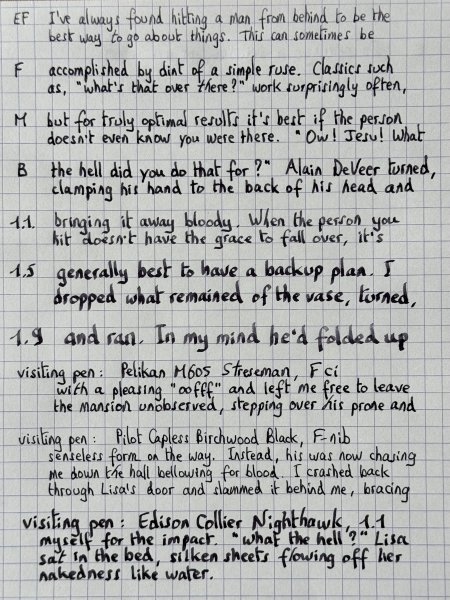 EF I've always found hitting a man from behind to be the
best way to go about things. This can sometimes be
F accomplished by dint of a simple ruse. Classics such
as, "what's that over there?" work surprisingly often,
M but for truly optimal results it's best if the person
doesn't even know you were there. "Ow! Jesu! What
B the hell did you do that for?" Alain DeVeer turned,
clamping his hand to the back of his head and
1.1. bringing it away bloody. When the person you
hit doesn't have the grace to fall over, it's
1.5 generally best to have a backup plan. I
dropped what remained of the vase, turned,
1.9 and ran. In my mind he'd folded up
visiting pen: Pelikan M605 Streseman, F ci
with a pleasing "oofff" and left me free to leave
the mansion unobserved, stepping over his prone and
visiting pen: Pilot Capless Birchwood Black, F-nib
senseless form on the way. Instead, his was now chasing
me down the hall bellowing for blood. I crashed back
through Lisa's door and slammed it behind me, bracing
visiting pen: Edison Collier Nighthawk, 1.1
myself for the impact. "what the hell?" Lisa
sat in the bed, silken sheets flowing off her
nakedness like water.